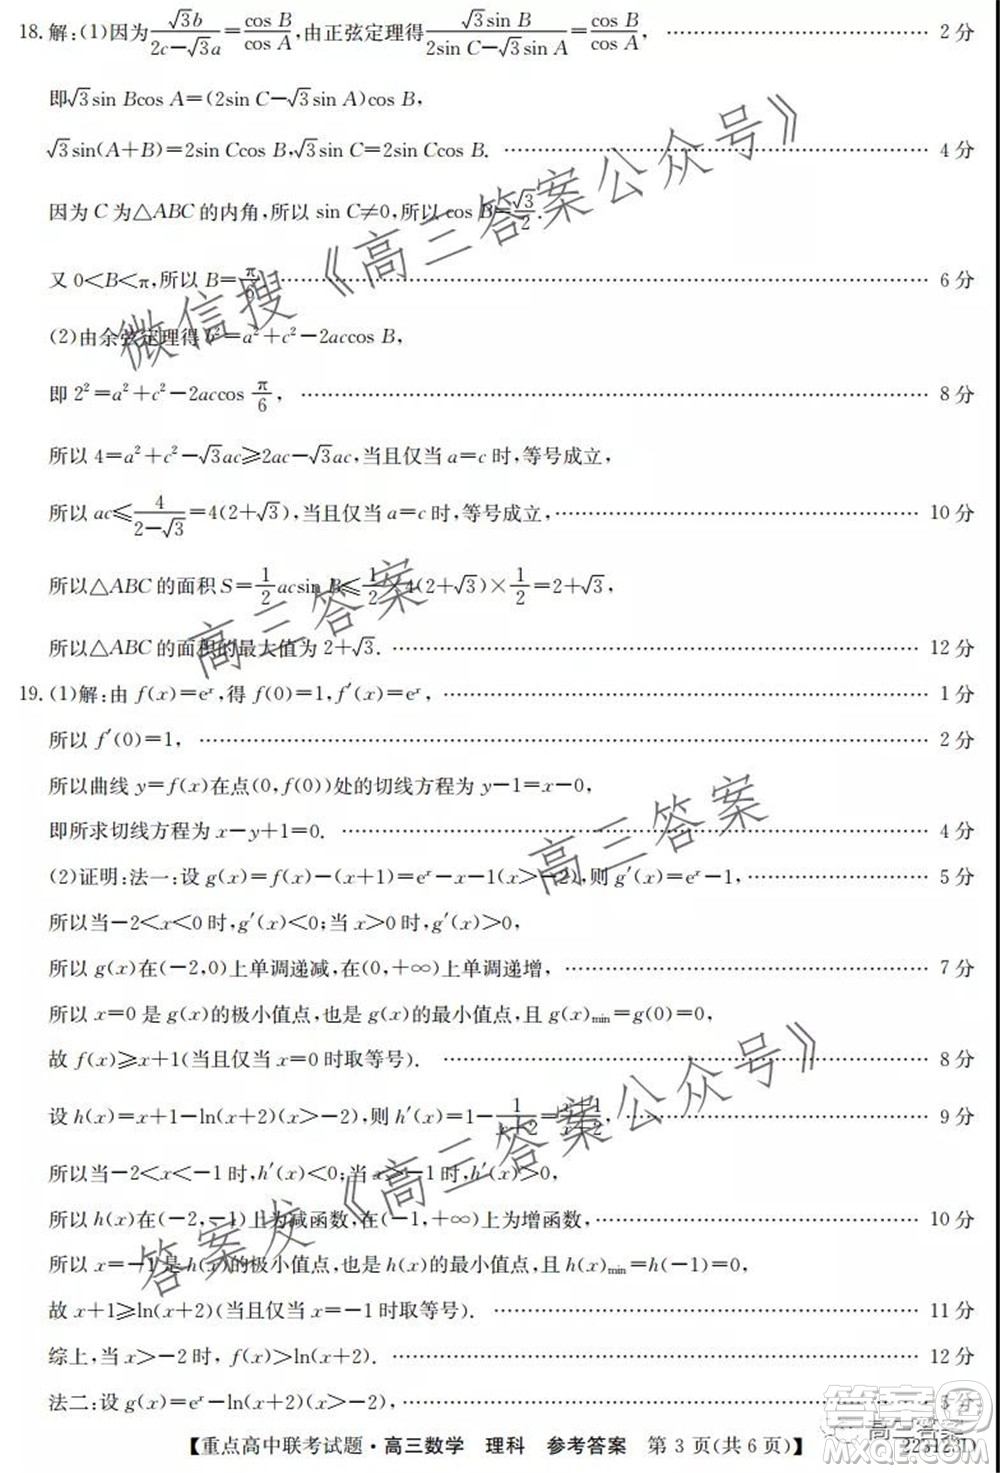 18. 解:(1)因为√3b/(2c-√3a)=cos B/cos A,由正弦定理得√3sin B/(2sin C-√3sin A)=cos B/cos A, …… 2 分
即√3sin Bcos A=(2sin C-√3sin A)cos B,
√3sin(A+B)=2sin Ccos B,√3sin C=2sin Ccos B. …… 4 分
因为 C 为△ABC 的内角,所以 sin C≠0,所以 cos B=√3/2.
又 0<B<π,所以 B=π/6 …… 6 分
(2)由余弦定理得 b²=a²+c²-2accos B,
即 2²=a²+c²-2accos π/6, …… 8 分
所以 4=a²+c²-√3ac≥2ac-√3ac,当且仅当 a=c 时,等号成立,
所以 ac≤4/(2-√3)=4(2+√3),当且仅当 a=c 时,等号成立, …… 10 分
所以△ABC 的面积 S=1/2acsin B≤1/2×4(2+√3)×1/2=2+√3,
所以△ABC 的面积的最大值为 2+√3. …… 12 分
19. (1)解:由 f(x)=eˣ,得 f(0)=1,f′(x)=eˣ, …… 1 分
所以 f′(0)=1, …… 2 分
所以曲线 y=f(x)在点(0,f(0))处的切线方程为 y-1=x-0,
即所求切线方程为 x-y+1=0. …… 4 分
(2)证明:法一:设 g(x)=f(x)-(x+1)=eˣ-x-1(x>-2),则 g′(x)=eˣ-1, …… 5 分
所以当-2<x<0 时,g′(x)<0;当 x>0 时,g′(x)>0,
所以 g(x)在(-2,0)上单调递减,在(0,+∞)上单调递增, …… 7 分
所以 x=0 是 g(x)的极小值点,也是 g(x)的最小值点,且 g(x)min=g(0)=0,
故 f(x)≥x+1(当且仅当 x=0 时取等号). …… 8 分
设 h(x)=x+1-ln(x+2)(x>-2),则 h′(x)=1-1/(x+2)=(x+1)/(x+2), …… 9 分
所以当-2<x<-1 时,h′(x)<0;当 x>-1 时,h′(x)>0,
所以 h(x)在(-2,-1)上为减函数,在(-1,+∞)上为增函数, …… 10 分
所以 x=-1 是 h(x)的极小值点,也是 h(x)的最小值点,且 h(x)min=h(-1)=0,
故 x+1≥ln(x+2)(当且仅当 x=-1 时取等号). …… 11 分
综上,当 x>-2 时,f(x)>ln(x+2). …… 12 分
法二:设 g(x)=eˣ-ln(x+2)(x>-2), …… 5 分
【重点高中联考试题·高三数学 理科 参考答案 第 3 页(共 6 页)】
223123D
微信搜《高三答案公众号》
高三答案
高三答案
答案发《高三答案公众号》
高三答案
答案圈
MXQE.COM